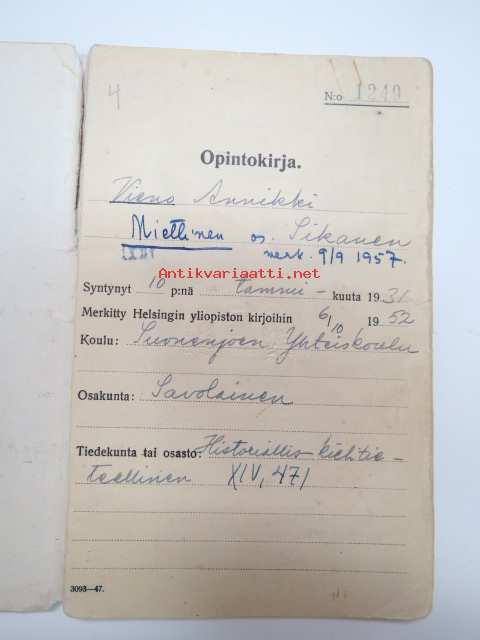 4
N:o 1240
Opintokirja.
Vieno Annikki
Miettinen os. Sikanen
merk. 9/9 1957.
Antikvariaatti.net
Syntynyt 10 p:nä tammi- kuuta 1931
Merkitty Helsingin yliopiston kirjoihin 6/10 1952
Koulu: Suonenjoen Yhteiskoulu
Osakunta: Savolainen
Tiedekunta tai osasto: Historiallis-kielitie-
teellinen XIV, 471
3093—47.